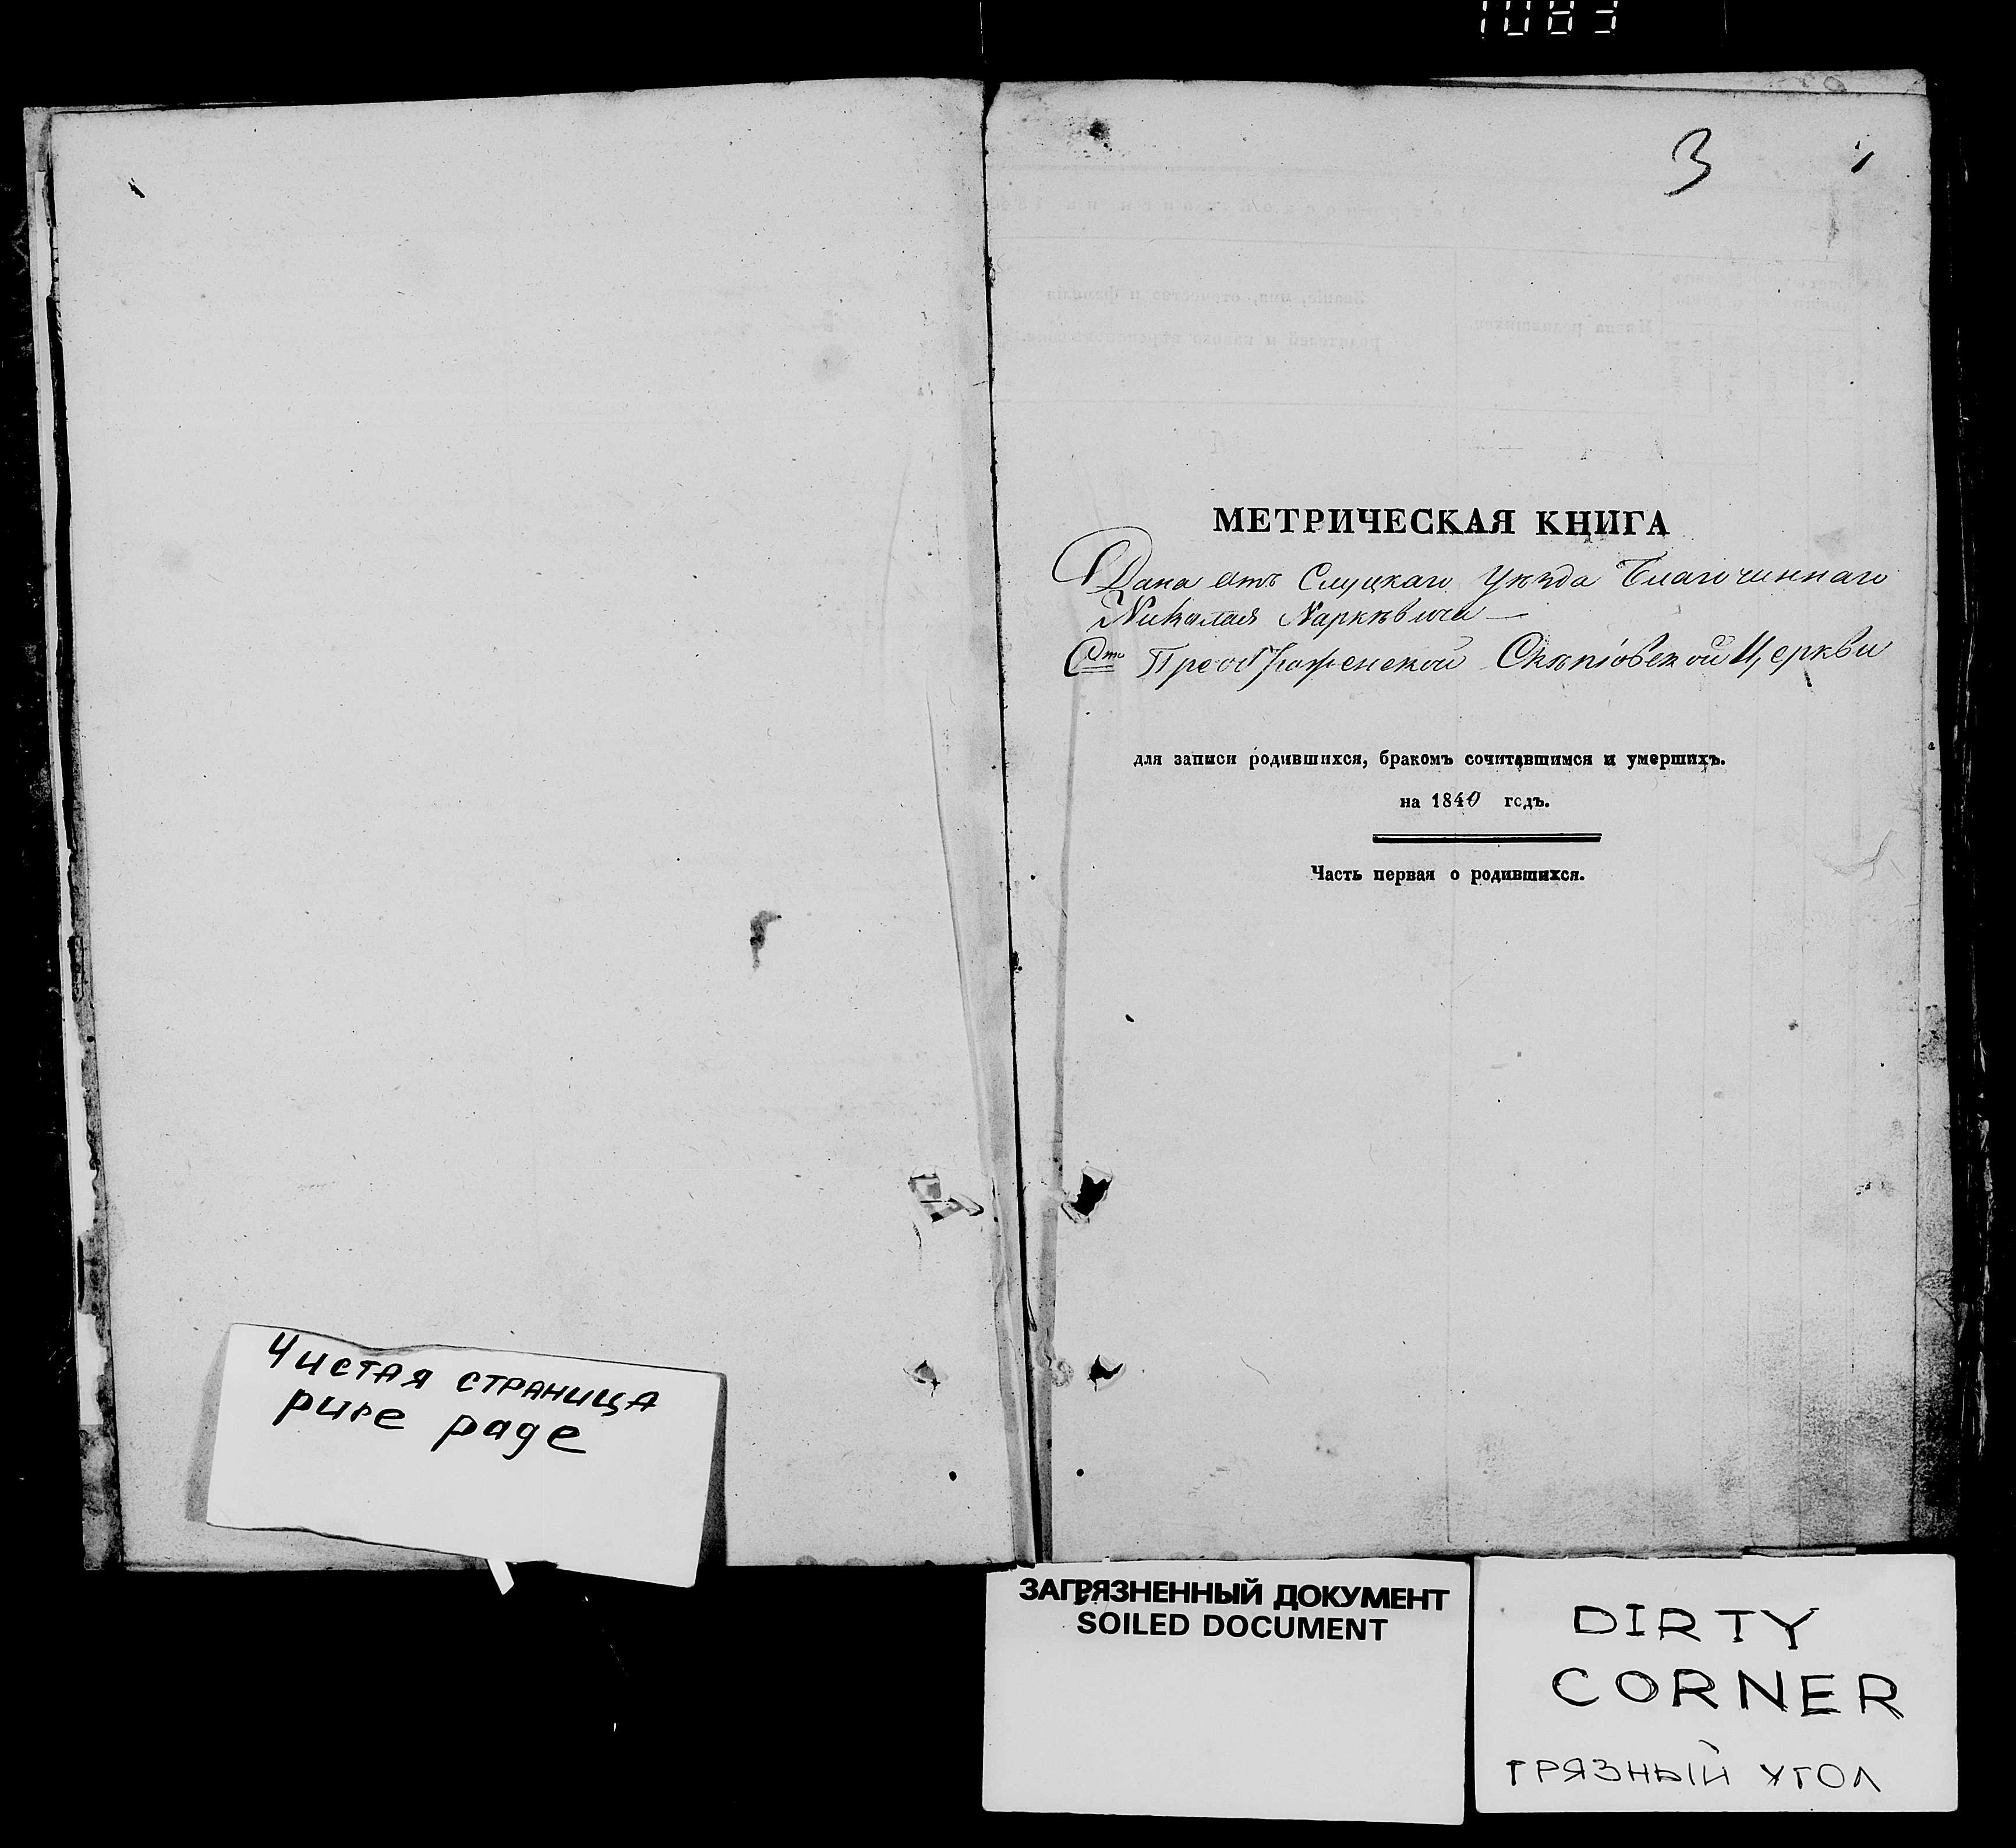 1083
3
МЕТРИЧЕСКАЯ КНИГА
Дана отъ Слуцкаго Уѣзда Благочиннаго
Николая
Отъ Преображенской Церкви
для записи родившихся, бракомъ сочитавшимся и умершихъ.
на 1840 годъ.
Часть первая о родившихся.
Чистая страница
pure page
ЗАГРЯЗНЕННЫЙ ДОКУМЕНТ
SOILED DOCUMENT
DIRTY
CORNER
ГРЯЗНЫЙ УГОЛ